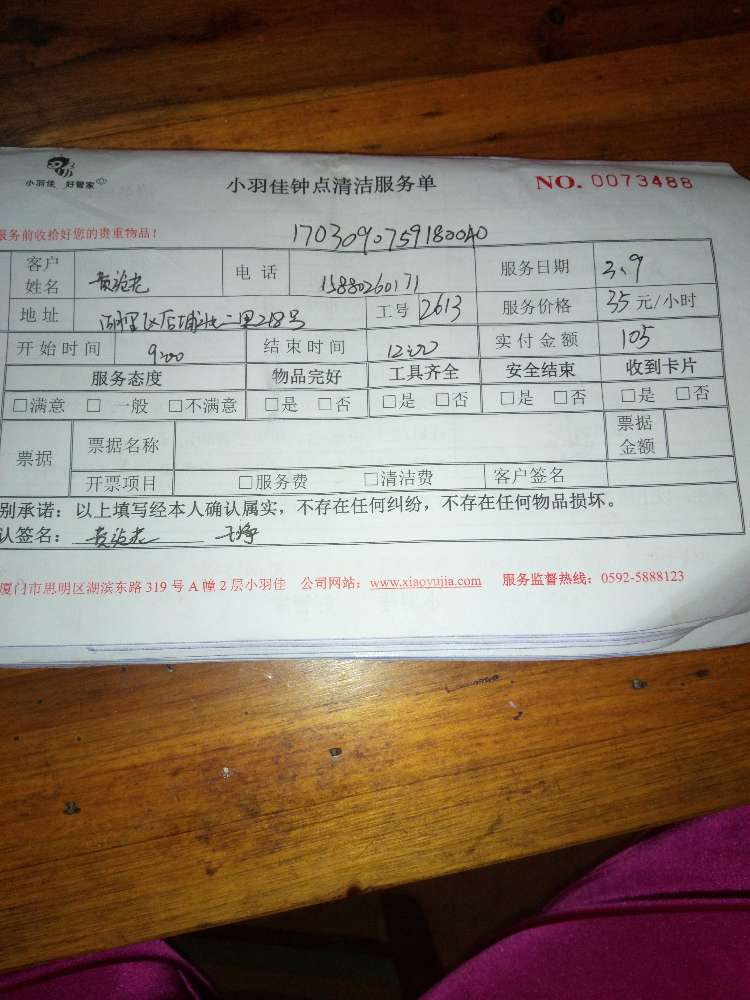 小羽佳 好管家
小羽佳钟点清洁服务单
NO. 0073488
服务前收拾好您的贵重物品!
1703090759180040
客户姓名 黄 电话 15880260171 服务日期 3.9
地址 湖里区后埔社二里218号 工号 2613 服务价格 35 元/小时
开始时间 9:00 结束时间 12:00 实付金额 105
服务态度 物品完好 工具齐全 安全结束 收到卡片
□满意 □一般 □不满意 □是 □否 □是 □否 □是 □否 □是 □否
票据 票据名称 票据金额
开票项目 □服务费 □清洁费 客户签名
别承诺:以上填写经本人确认属实,不存在任何纠纷,不存在任何物品损坏。
认签名: 黄
厦门市思明区湖滨东路 319 号 A 幢 2 层小羽佳 公司网站:www.xiaoyujia.com 服务监督热线:0592-5888123